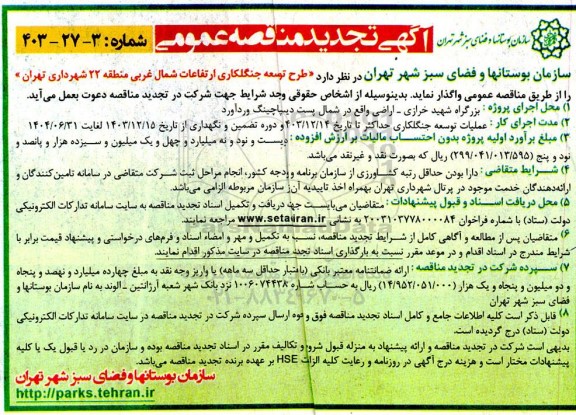 سازمان بوستانها و فضای سبز شهر تهران
آگهی تجدید مناقصه عمومی
شماره: ۳-۲۷-۴۰۳
سازمان بوستانها و فضای سبز شهر تهران در نظر دارد «طرح توسعه جنگلکاری ارتفاعات شمال غربی منطقه ۲۲ شهرداری تهران»
را از طریق مناقصه عمومی واگذار نماید. بدینوسیله از اشخاص حقوقی واجد شرایط جهت شرکت در تجدید مناقصه دعوت بعمل می‌آید.
۱) محل اجرای پروژه: بزرگراه شهید خرازی - اراضی واقع در شمال پست دیسپاچینگ وردآورد
۲) مدت اجرای کار: عملیات توسعه جنگلکاری حداکثر تا تاریخ ۱۴۰۳/۱۲/۱۴ و دوره تضمین و نگهداری از تاریخ ۱۴۰۳/۱۲/۱۵ لغایت ۱۴۰۴/۰۶/۳۱
۳) مبلغ برآورد اولیه پروژه بدون احتساب مالیات بر ارزش افزوده: دویست و نود و نه میلیارد و چهل و یک میلیون و سیزده هزار و پانصد و
نود و پنج (۲۹۹/۰۴۱/۰۱۳/۵۹۵) ریال که بصورت نقد و غیرنقد می‌باشد
۴) شرایط متقاضی: دارا بودن حداقل رتبه کشاورزی از سازمان برنامه و بودجه کشور، انجام مراحل ثبت شرکت متقاضی در سامانه تامین‌کنندگان و
ارائه‌دهندگان خدمت موجود در پرتال شهرداری تهران بهمراه اخذ تاییدیه آن سازمان مربوطه الزامی می‌باشد.
۵) محل دریافت اسناد و قبول پیشنهادات: متقاضیان می‌بایست جهت دریافت و تکمیل اسناد تجدید مناقصه به سایت سامانه تدارکات الکترونیکی
دولت (ستاد) با شماره فراخوان ۲۰۰۳۱۰۳۷۷۸۰۰۰۰۸۴ به نشانی www.setairan.ir مراجعه نمایند.
۶) متقاضیان پس از مطالعه و آگاهی کامل از شرایط تجدید مناقصه، نسبت به تکمیل و مهر و امضاء اسناد و فرم‌های درخواستی و پیشنهاد قیمت برابر با
شرایط مندرج در اسناد اقدام و در موعد مقرر نسبت به بارگذاری اسناد تجدید مناقصه در سایت مذکور اقدام نمایند.
۷) سپرده شرکت در تجدید مناقصه: ارائه ضمانتنامه معتبر بانکی (باعتبار حداقل سه ماهه) یا واریز وجه نقد به مبلغ چهارده میلیارد و نهصد و پنجاه
و دو میلیون و پنجاه و یک هزار (۱۴/۹۵۲/۰۵۱/۰۰۰) ریال به حساب شماره ۱۰۰۶۰۷۴۴۳۸ نزد بانک شهر شعبه آرژانتین - الوند به نام سازمان بوستانها و
فضای سبز شهر تهران
۸) قابل ذکر است کلیه اطلاعات جامع و کامل اسناد تجدید مناقصه فوق و نحوه ارسال سپرده شرکت در تجدید مناقصه در سایت سامانه تدارکات الکترونیکی
دولت (ستاد) درج گردیده است.
بدیهی است شرکت در مناقصه و ارائه پیشنهاد به منزله قبول شروط و تکالیف مقرر در اسناد تجدید مناقصه بوده و سازمان در رد یا قبول یک یا کلیه
پیشنهادات مختار است و هزینه درج آگهی در روزنامه و رعایت کلیه الزامات HSE بر عهده برنده تجدید مناقصه می‌باشد.
سازمان بوستانها و فضای سبز شهر تهران
http://parks.tehran.ir